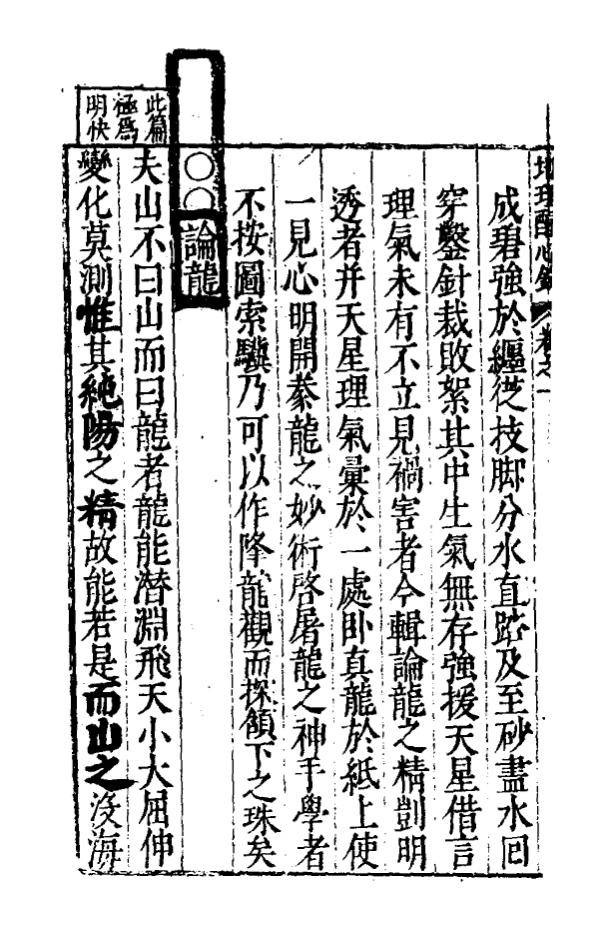 地理醒心錄 卷之一
成碧強於纏從技脚分水直跡及至砂盡水囘
穿鑿針裁敗絮其中生氣無存強援天星借言
理氣未有不立見禍害者今輯論龍之精剴明
透者并天星理氣彙於一處卧真龍於紙上使
一見心明開豢龍之妙術啓屠龍之神手學者
不按圖索驥乃可以作降龍觀而探頷下之珠矣
○○論龍
此篇
極爲
明快
夫山不曰山而曰龍者龍能潛淵飛天小大屈伸
變化莫測惟其純陽之精故能若是而山之沒海